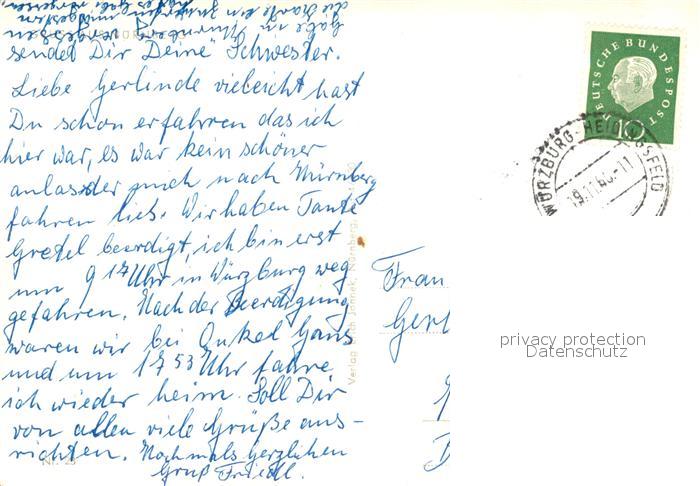 sendet Dir Deine Schwester.
Liebe Gerlinde vieleicht hast
Du schon erfahren das ich
hier war, es war kein schöner
anlass der mich nach Nürnberg
fahren lies. Wir haben Tante
Gretel beerdigt, ich bin erst
um 9 17 Uhr in Würzburg weg
gefahren. Nach der Beerdigung
waren wir bei Onkel Hans
und um 17 53 Uhr fahre
ich wieder heim. Soll Dir
von allen viele Grüße aus-
richten. Nochmals herzlichen
Gruß Friedl.
Nr. 25
Verlag Erich Jannek, Nürnberg,
DEUTSCHE BUNDESPOST
10
WÜRZBURG-HEIDINGSFELD
Frau
Gerl
privacy protection
Datenschutz